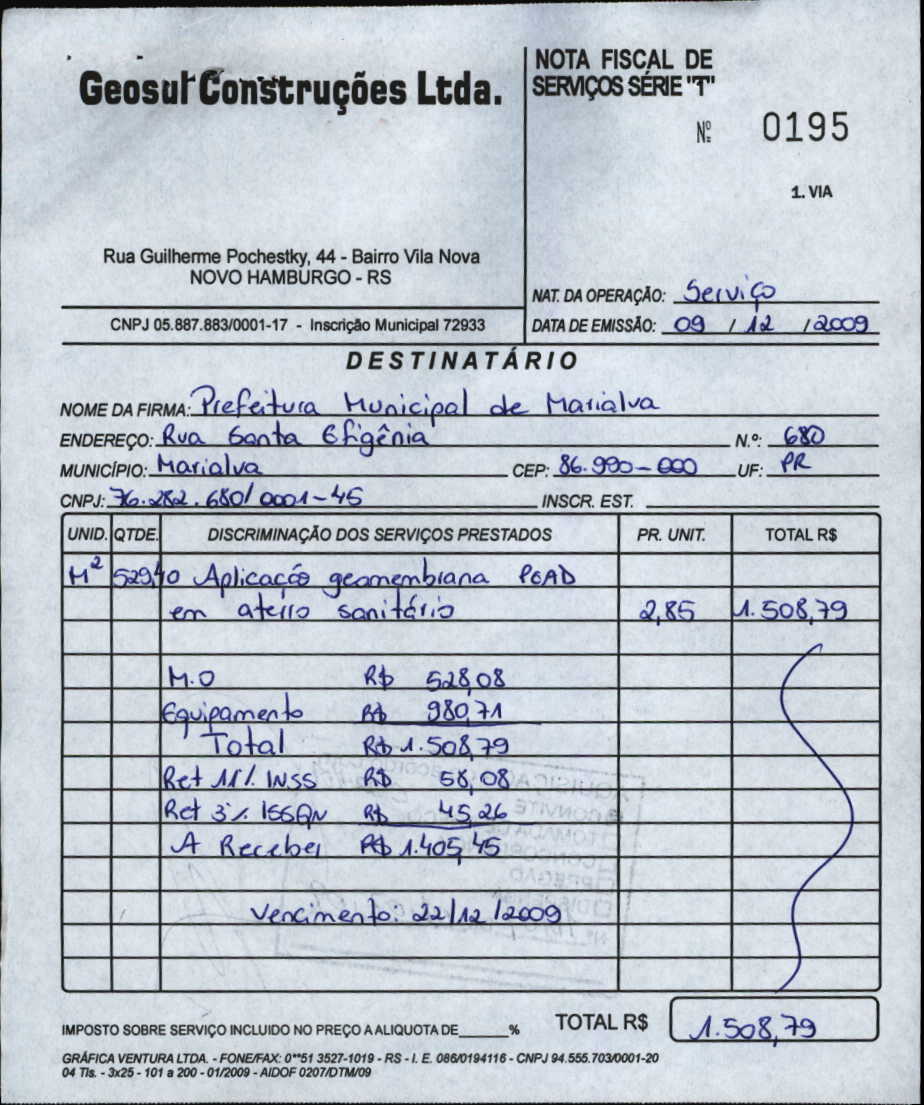 Geosul Construções Ltda.
NOTA FISCAL DE
SERVIÇOS SÉRIE "T"
Nº 0195
1. VIA
Rua Guilherme Pochestky, 44 - Bairro Vila Nova
NOVO HAMBURGO - RS
NAT. DA OPERAÇÃO: Serviço
CNPJ 05.887.883/0001-17 - Inscrição Municipal 72933
DATA DE EMISSÃO: 09 / 12 / 2009
DESTINATÁRIO
NOME DA FIRMA: Prefeitura Municipal de Marialva
ENDEREÇO: Rua Santa Efigênia N.º: 680
MUNICÍPIO: Marialva CEP: 86.990-000 UF: PR
CNPJ: 76.282.680/0001-45 INSCR. EST.
UNID. QTDE. DISCRIMINAÇÃO DOS SERVIÇOS PRESTADOS PR. UNIT. TOTAL R$
M² 529,40 Aplicação geomembrana PEAD
em aterro sanitário 2,85 1.508,79
M.O R$ 528,08
Equipamento R$ 980,71
Total R$ 1.508,79
Ret 11% INSS R$ 58,08
Ret 3% ISSQN R$ 45,26
A Receber R$ 1.405,45
Vencimento: 22/12/2009
IMPOSTO SOBRE SERVIÇO INCLUIDO NO PREÇO A ALIQUOTA DE______% TOTAL R$ 1.508,79
GRÁFICA VENTURA LTDA. - FONE/FAX: 0**51 3527-1019 - RS - I. E. 086/0194116 - CNPJ 94.555.703/0001-20
04 Tls. - 3x25 - 101 a 200 - 01/2009 - AIDOF 0207/DTM/09